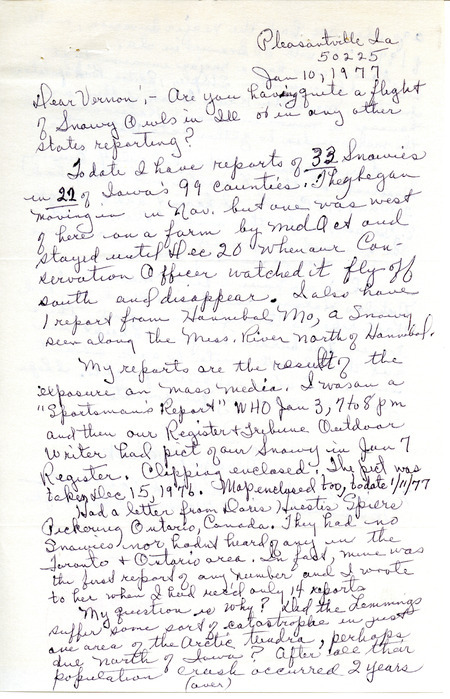 Pleasantville Ia
50225
Jan 10, 1977
Dear Vernon:- Are you having quite a flight
of Snowy Owls in Ill or in any other
states reporting?
To date I have reports of 33 Snowies
in 27 of Iowa's 99 counties. They began
moving in in Nov. but one was west
of here on a farm by mid Oct and
stayed until Dec 20 when our Con-
servation Officer watched it fly off
south and disappear. I also have
1 report from Hannibal Mo, a Snowy
seen along the Miss. River north of Hannibal.
My reports are the result of the
exposure on mass media. I was on a
"Sportsman's Report" WHO Jan 3, 7 to 8 pm
and then our Register & Tribune Outdoor
Writer had pict of our Snowy in Jan 7
Register. Clipping enclosed. The pict was
taken Dec 15, 1976. Map enclosed too, to date 1/11/77
Had a letter from Doris Huestis Speirs
Pickering Ontario, Canada. They had no
Snowies, nor hadn't heard of any in the
Toronto & Ontario area. In fact, mine was
the first report of any number and I wrote
to her when I had rec'd only 14 reports
My question is why? Did the Lemmings
suffer some sort of catastrophe in just
one area of the Arctic tundra, perhaps
due north of Iowa? After all their
population crash occurred 2 years
(over)